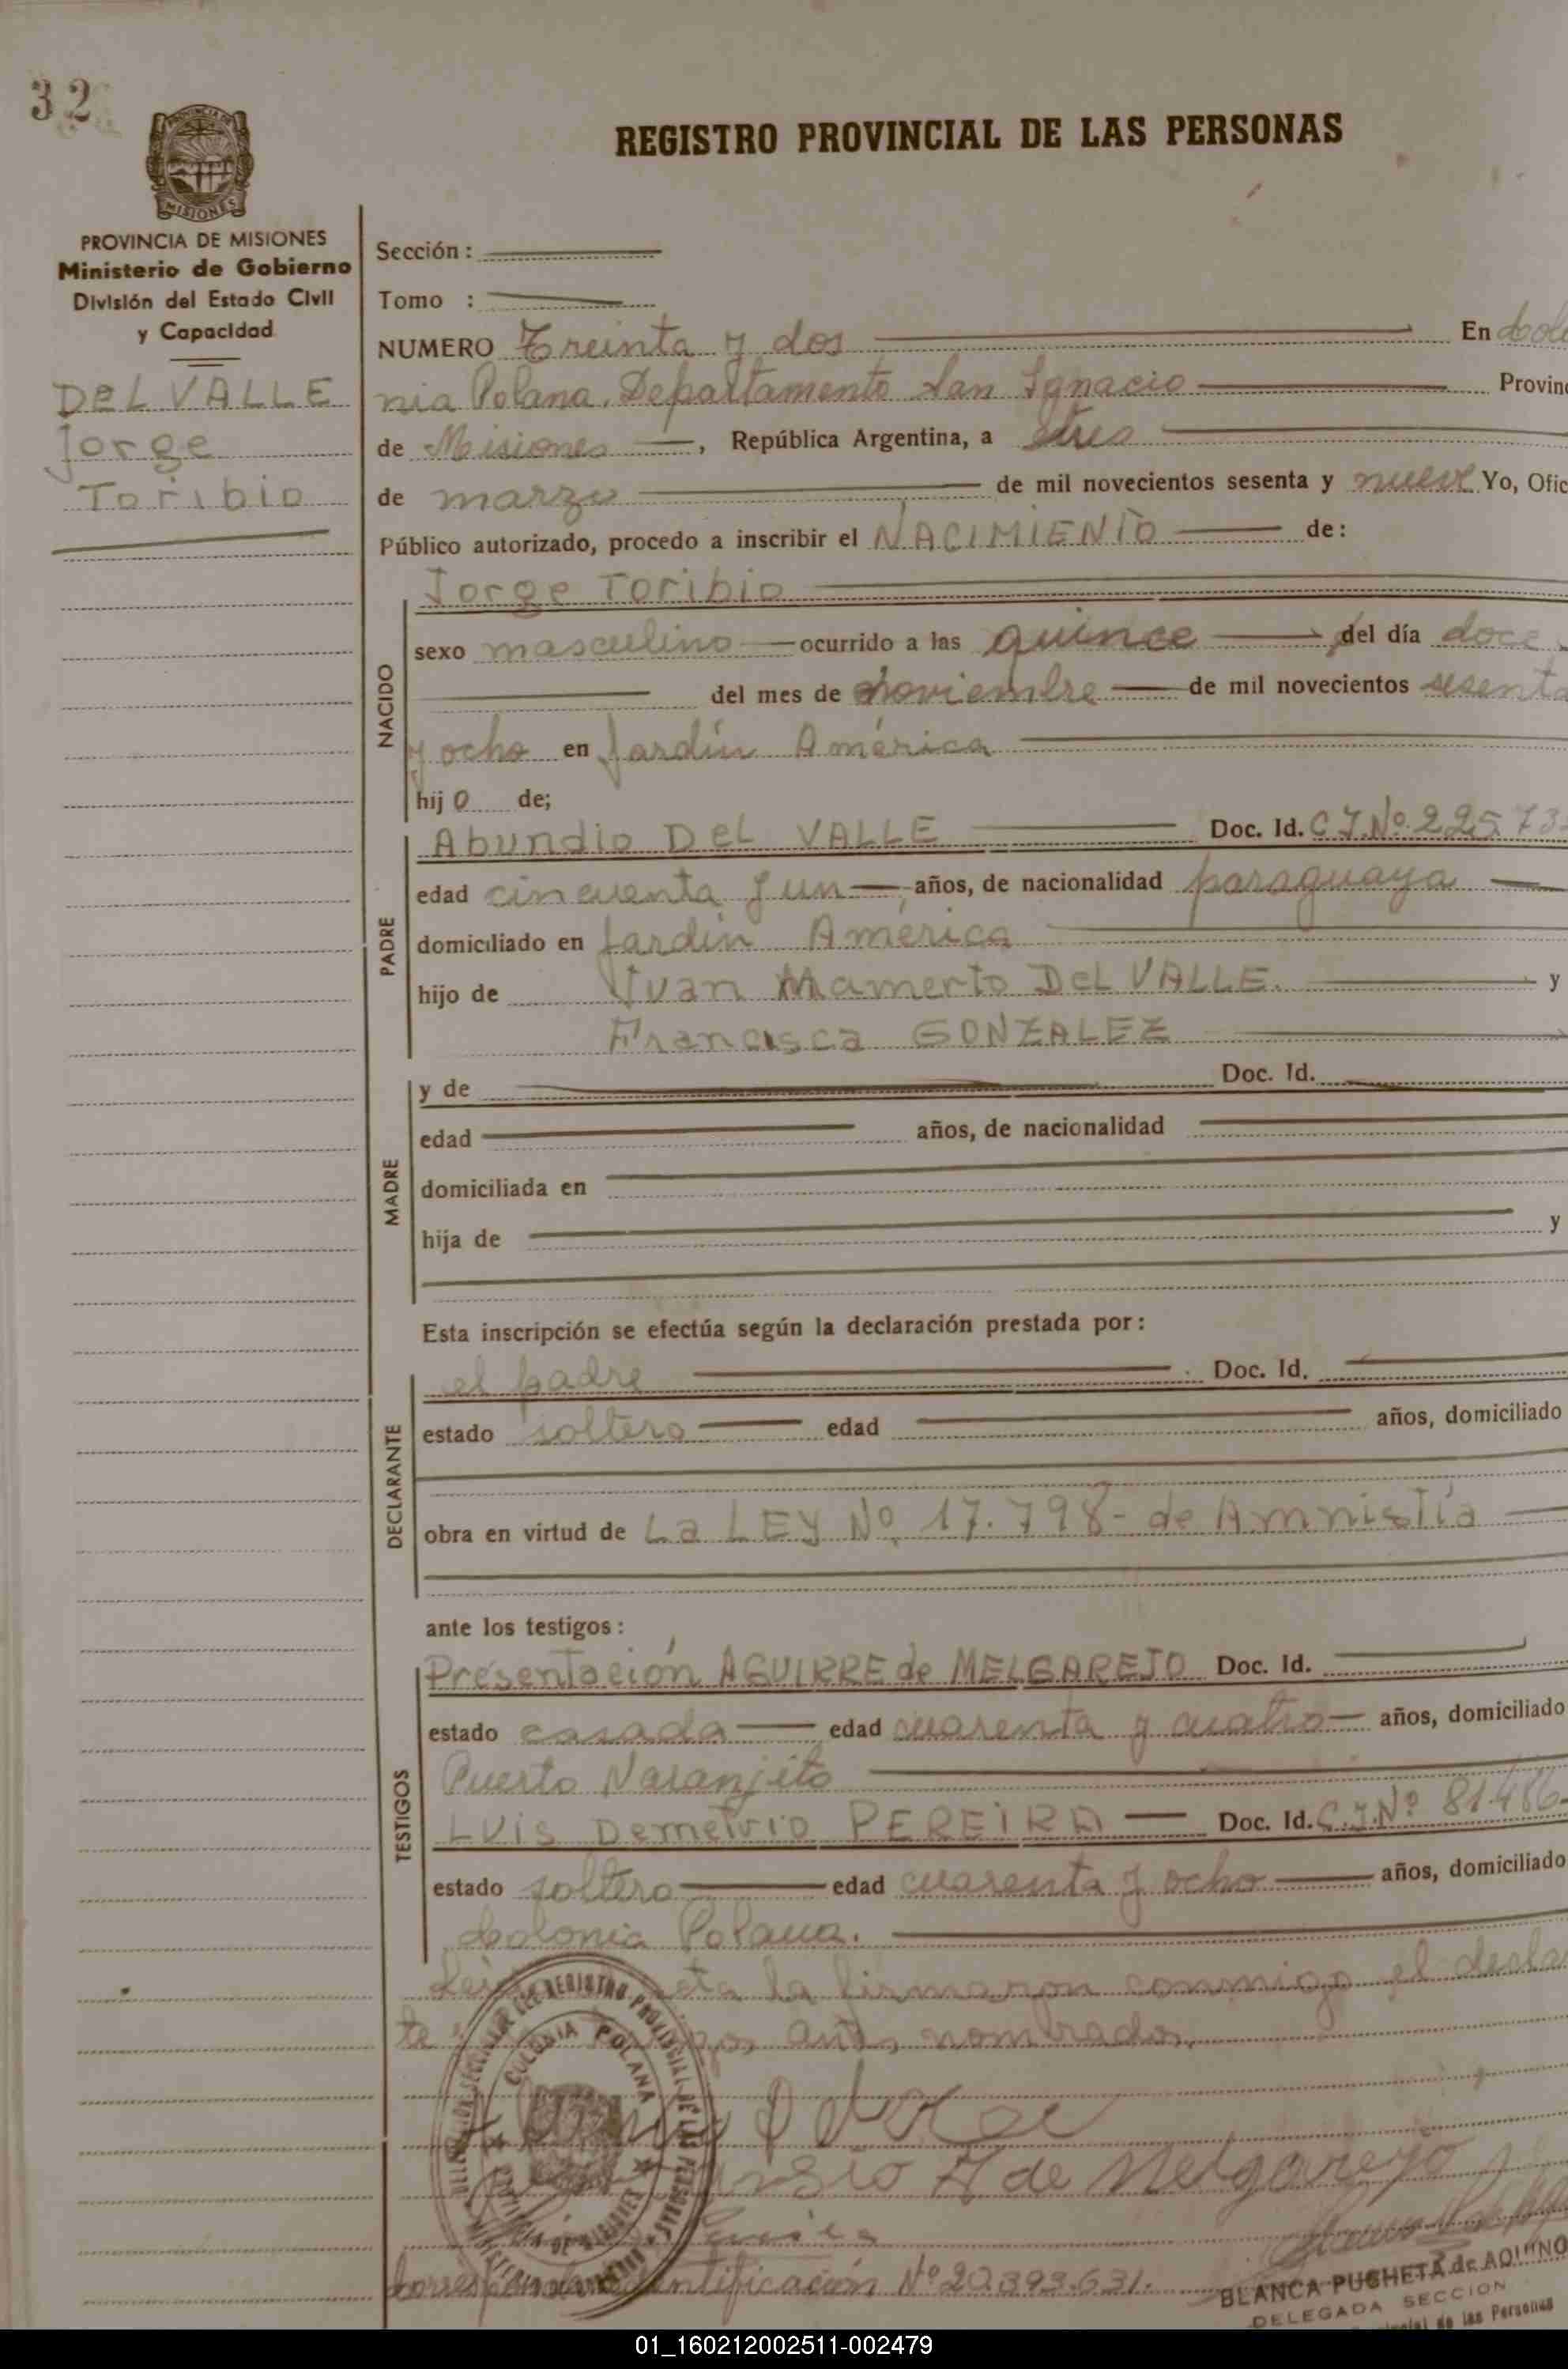 32
REGISTRO PROVINCIAL DE LAS PERSONAS
MISIONES
PROVINCIA DE MISIONES
Ministerio de Gobierno
División del Estado Civil
y Capacidad
DEL VALLE
Jorge
Toribio
Sección :
Tomo :
NUMERO Treinta y dos En Colo
nia Polana. Departamento San Ignacio Provinc
de Misiones , República Argentina, a tres
de marzo de mil novecientos sesenta y nueve Yo, Ofic
Público autorizado, procedo a inscribir el NACIMIENTO de:
NACIDO
Jorge Toribio
sexo masculino ocurrido a las quince del día doce
del mes de noviembre de mil novecientos sesenta
y ocho en Jardín América
hij o de;
PADRE
Abundio DEL VALLE Doc. Id. C.I.Nº 22573
edad cincuenta y un años, de nacionalidad paraguaya
domiciliado en Jardín América
hijo de Juan Mamerto DEL VALLE. y
Francisca GONZALEZ
MADRE
y de Doc. Id.
edad años, de nacionalidad
domiciliada en
hija de y
Esta inscripción se efectúa según la declaración prestada por:
DECLARANTE
el padre Doc. Id.
estado soltero edad años, domiciliado
obra en virtud de La LEY Nº 17.798- de Amnistía
ante los testigos:
TESTIGOS
Presentación AGUIRRE de MELGAREJO Doc. Id.
estado casada edad cuarenta y cuatro años, domiciliado
Puerto Naranjito
Luis Demetrio PEREIRA Doc. Id. C.I.Nº 81486
estado soltero edad cuarenta y ocho años, domiciliado
Colonia Polana.
la firmaron conmigo el decla
te antes nombrados.
COLONIA POLANA
A de Melgarejo
Nº 20.393.631.
BLANCA PUCHETA de AQUINO
DELEGADA SECCION
de las Personas
01_160212002511-002479